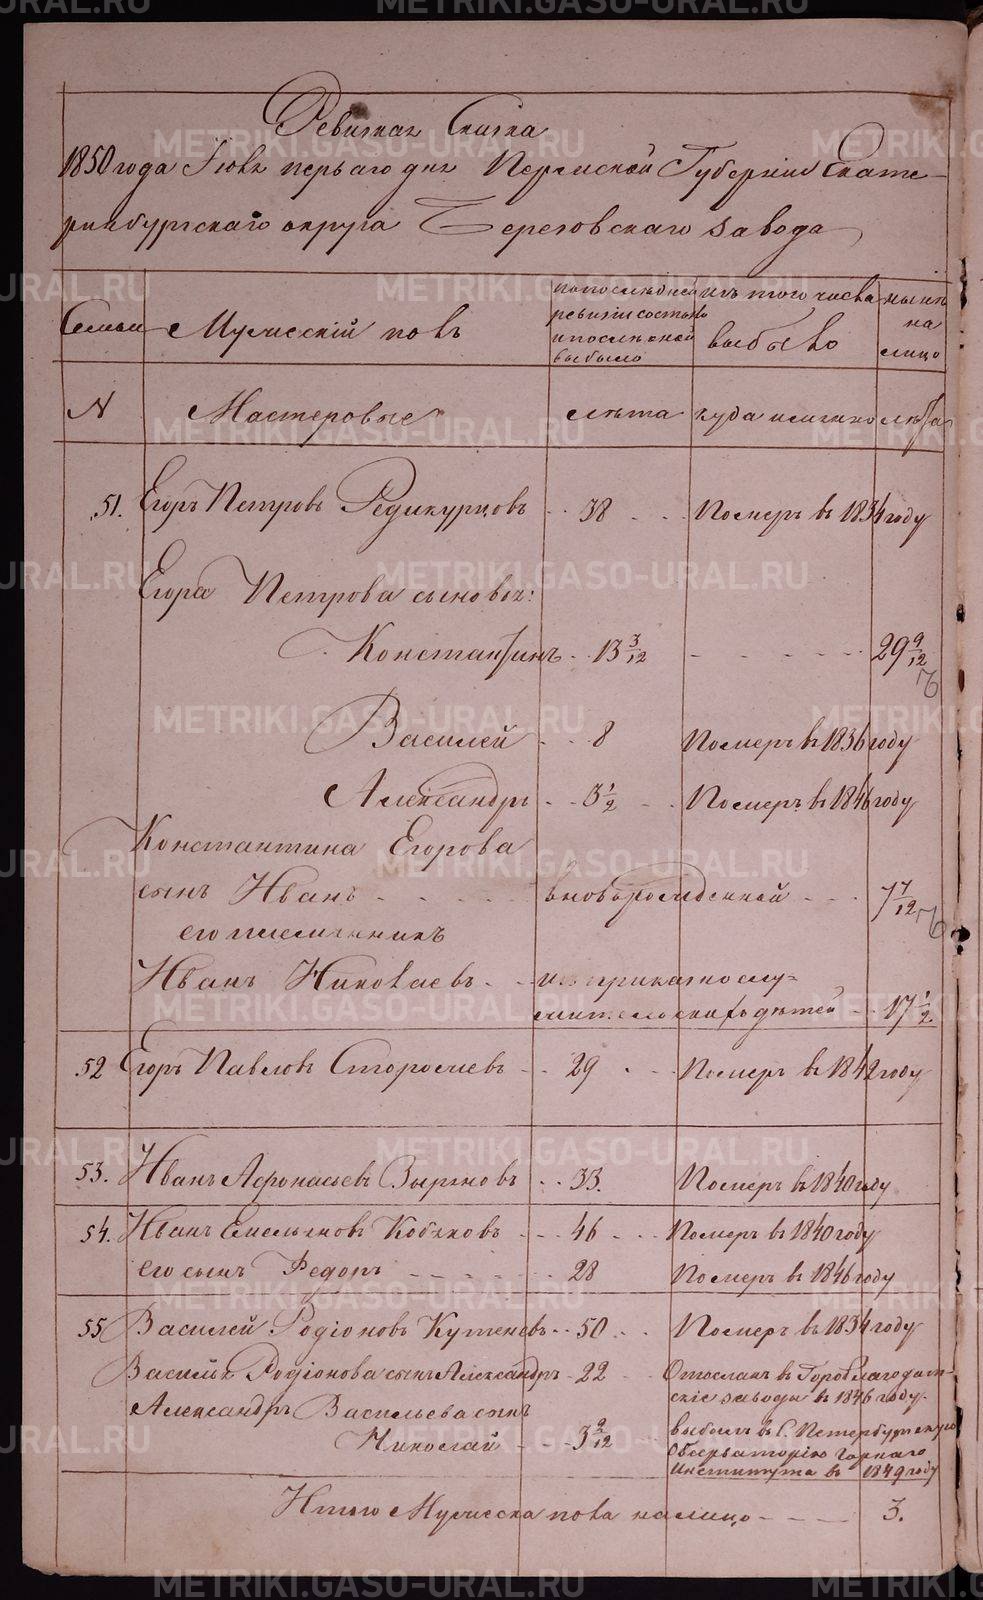 Ревизская Сказка
1850 года Июня перваго дня Пермской Губернiи Екате-
ринбургскаго округа Березовскаго завода
Семьи Мужескiй полъ по последней ревизiи состояло и после оной выбыло изъ того числа выбыло ныне на лицо
№ Мастеровые лета куда именно лета
51. Егоръ Петровъ Редикурцовъ 38 Померъ въ 1834 году
Егора Петрова сыновья:
Константинъ 13 3/12 29 9/12
Василей 8 Померъ въ 1836 году
Александръ 3 1/2 Померъ въ 1846 году
Константина Егорова
сынъ Иванъ вноворожденной 7 7/12
его племянникъ
Иванъ Николаевъ изъ приказнослу-
жительскихъ детей 17 1/2
52 Егоръ Павловъ Сторожевъ 29 Померъ въ 1842 году
53. Иванъ Афонасьевъ Зыряновъ 33. Померъ въ 1840 году
54. Иванъ Емельяновъ Кобяковъ 46 Померъ въ 1840 году
его сынъ Федоръ 28 Померъ въ 1846 году
55 Василей Родiоновъ Кутеневъ 50 Померъ въ 1834 году
Василья Родiонова сынъ Александръ 22 Отосланъ въ Гороблагодат-
скiе заводы въ 1846 году.
Александра Васильева сынъ
Николай 3 9/12 выбылъ въ С. Петербургскую
Обсерваторiю Горнаго
Института въ 1849 году
Итого Мужеска пола налицо 3.
METRIKI.GASO-URAL.RU